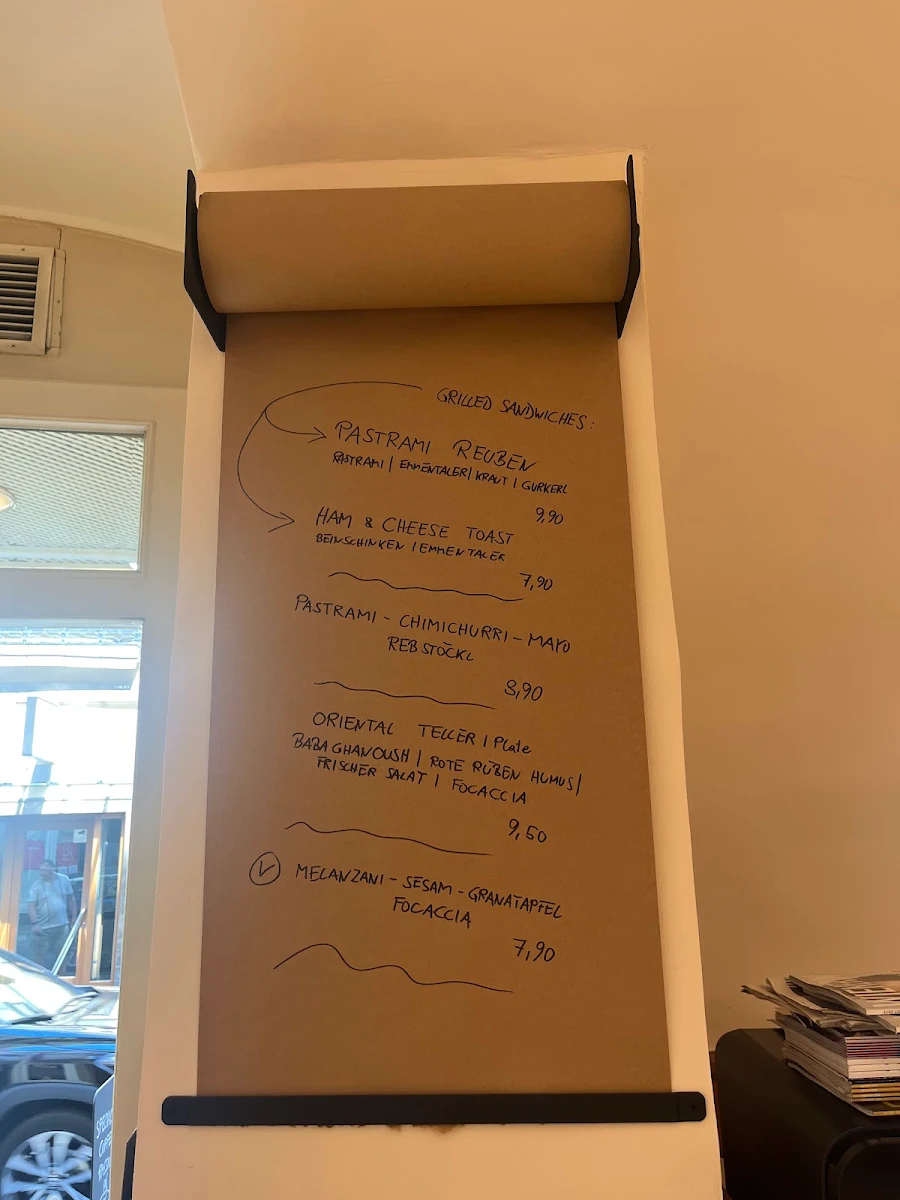 GRILLED SANDWICHES:
PASTRAMI REUBEN
PASTRAMI | EMMENTALER | KRAUT | GURKERL
9,90
HAM & CHEESE TOAST
BEINSCHINKEN | EMMENTALER
7,90
PASTRAMI - CHIMICHURRI - MAYO
REBSTÖCKL
8,90
ORIENTAL TELLER | Plate
BABA GHANOUSH | ROTE RÜBEN HUMUS |
FRISCHER SALAT | FOCACCIA
9,50
V MELANZANI - SESAM - GRANATAPFEL
FOCACCIA
7,90